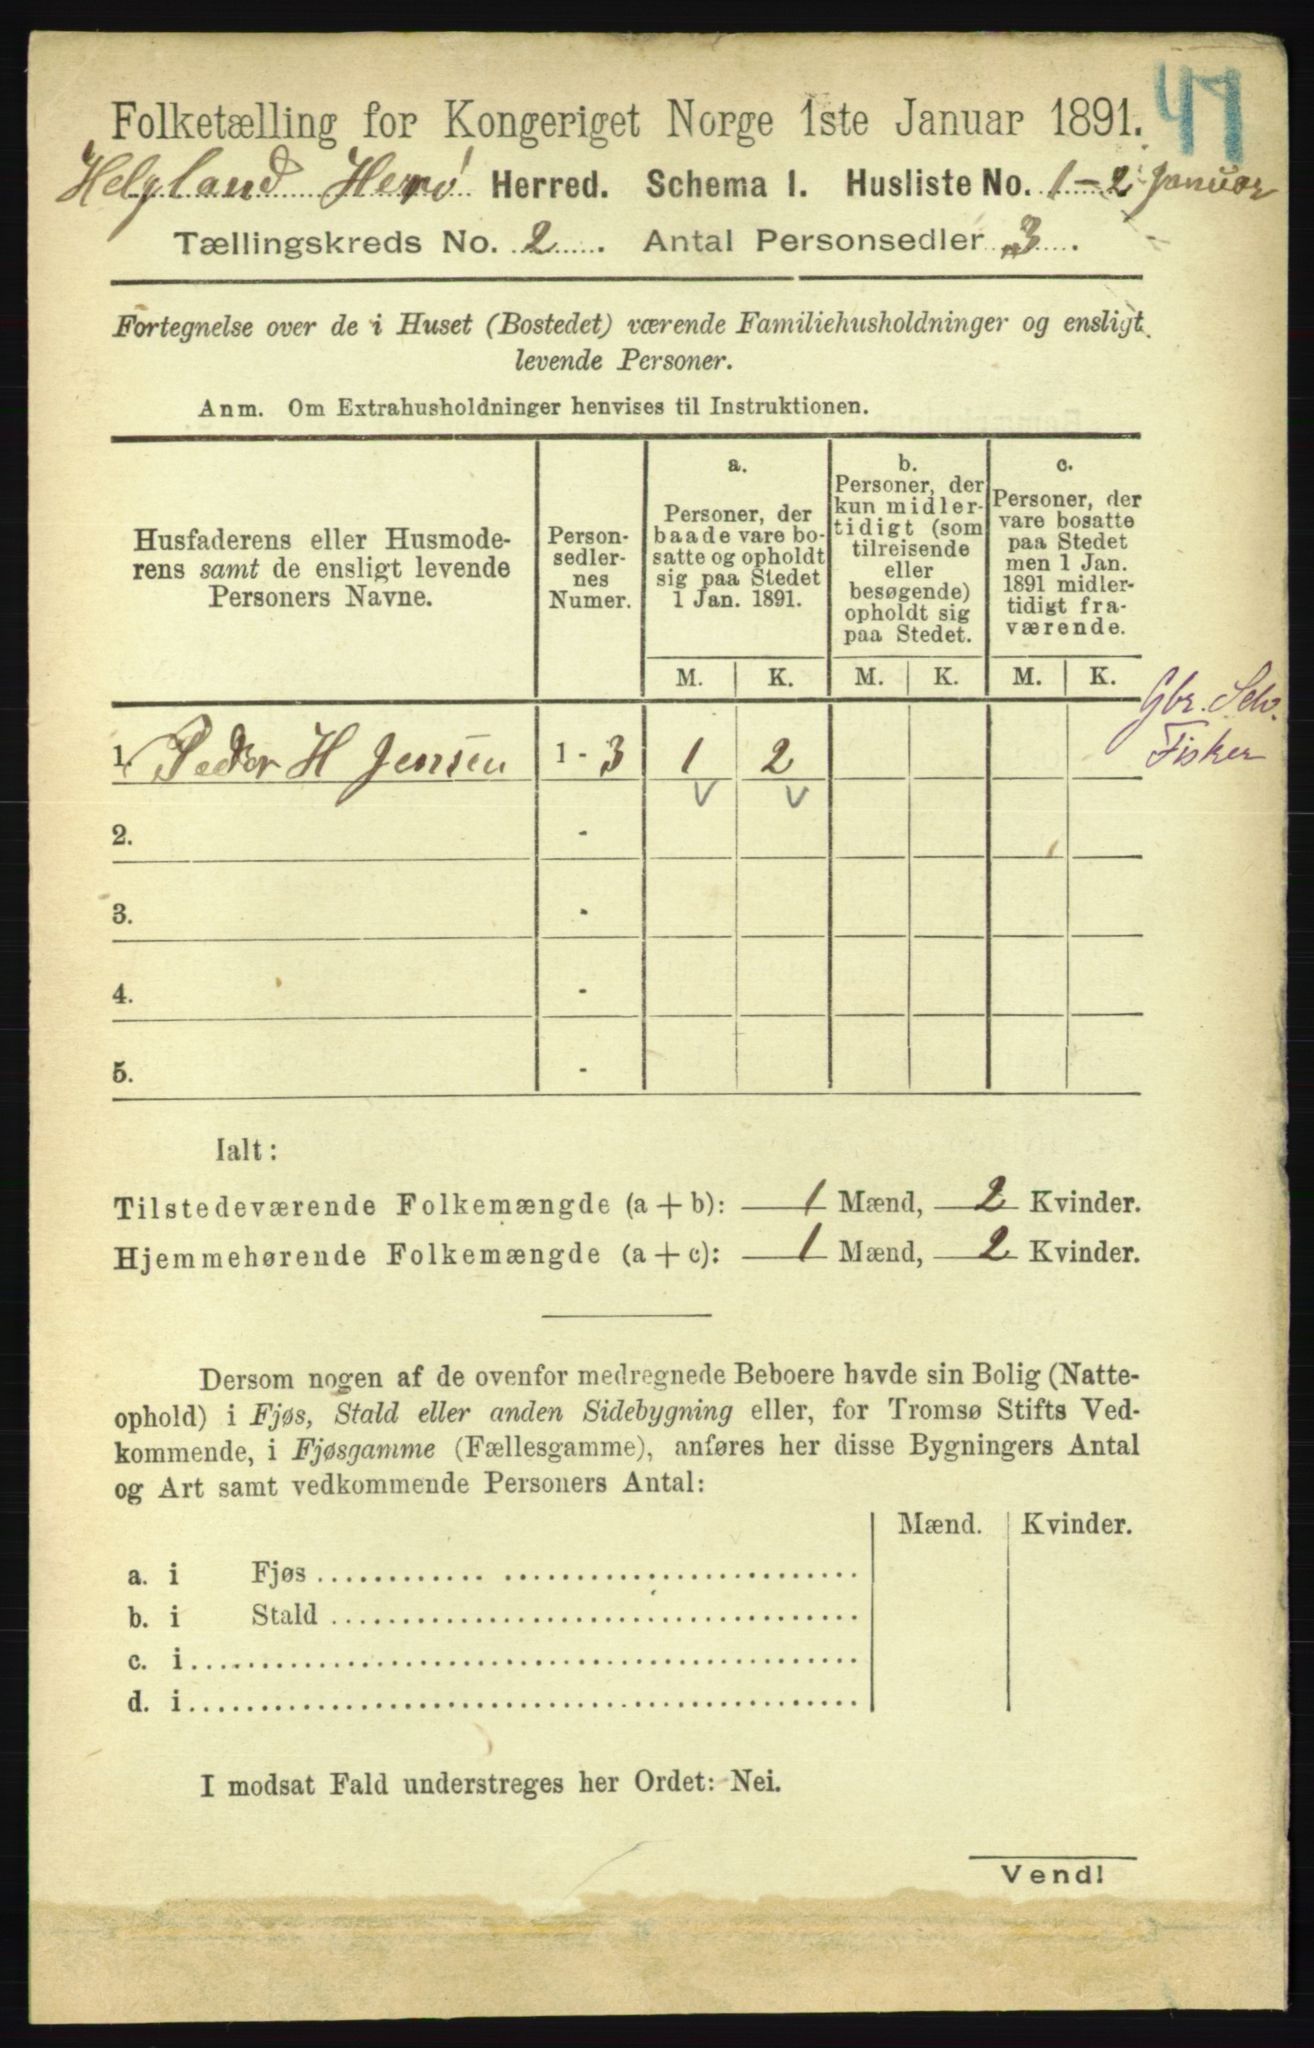 47
Folketælling for Kongeriget Norge 1ste Januar 1891.
Helgland Herø Herred. Schema I. Husliste No. 1-2 Januar
Tællingskreds No. 2. Antal Personsedler 3.
Fortegnelse over de i Huset (Bostedet) værende Familiehusholdninger og ensligt
levende Personer.
Anm. Om Extrahusholdninger henvises til Instruktionen.
Husfaderens eller Husmode-
rens samt de ensligt levende
Personers Navne.
Person-
sedler-
nes
Numer.
a.
Personer, der
baade vare bo-
satte og opholdt
sig paa Stedet
1 Jan. 1891.
b.
Personer, der
kun midler-
tidigt (som
tilreisende
eller
besøgende)
opholdt sig
paa Stedet.
c.
Personer, der
vare bosatte
paa Stedet
men 1 Jan.
1891 midler-
tidigt fra-
værende.
M. K. M. K. M. K.
Gbr. Selv.
Fisker
1. Peder H Jensen 1 - 3 1 2
2. -
3. -
4. -
5. -
Ialt:
Tilstedeværende Folkemængde (a + b): 1 Mænd, 2 Kvinder.
Hjemmehørende Folkemængde (a + c): 1 Mænd, 2 Kvinder.
Dersom nogen af de ovenfor medregnede Beboere havde sin Bolig (Natte-
ophold) i Fjøs, Stald eller anden Sidebygning eller, for Tromsø Stifts Ved-
kommende, i Fjøsgamme (Fællesgamme), anføres her disse Bygningers Antal
og Art samt vedkommende Personers Antal:
Mænd. Kvinder.
a. i Fjøs
b. i Stald
c. i
d. i
I modsat Fald understreges her Ordet: Nei.
Vend!